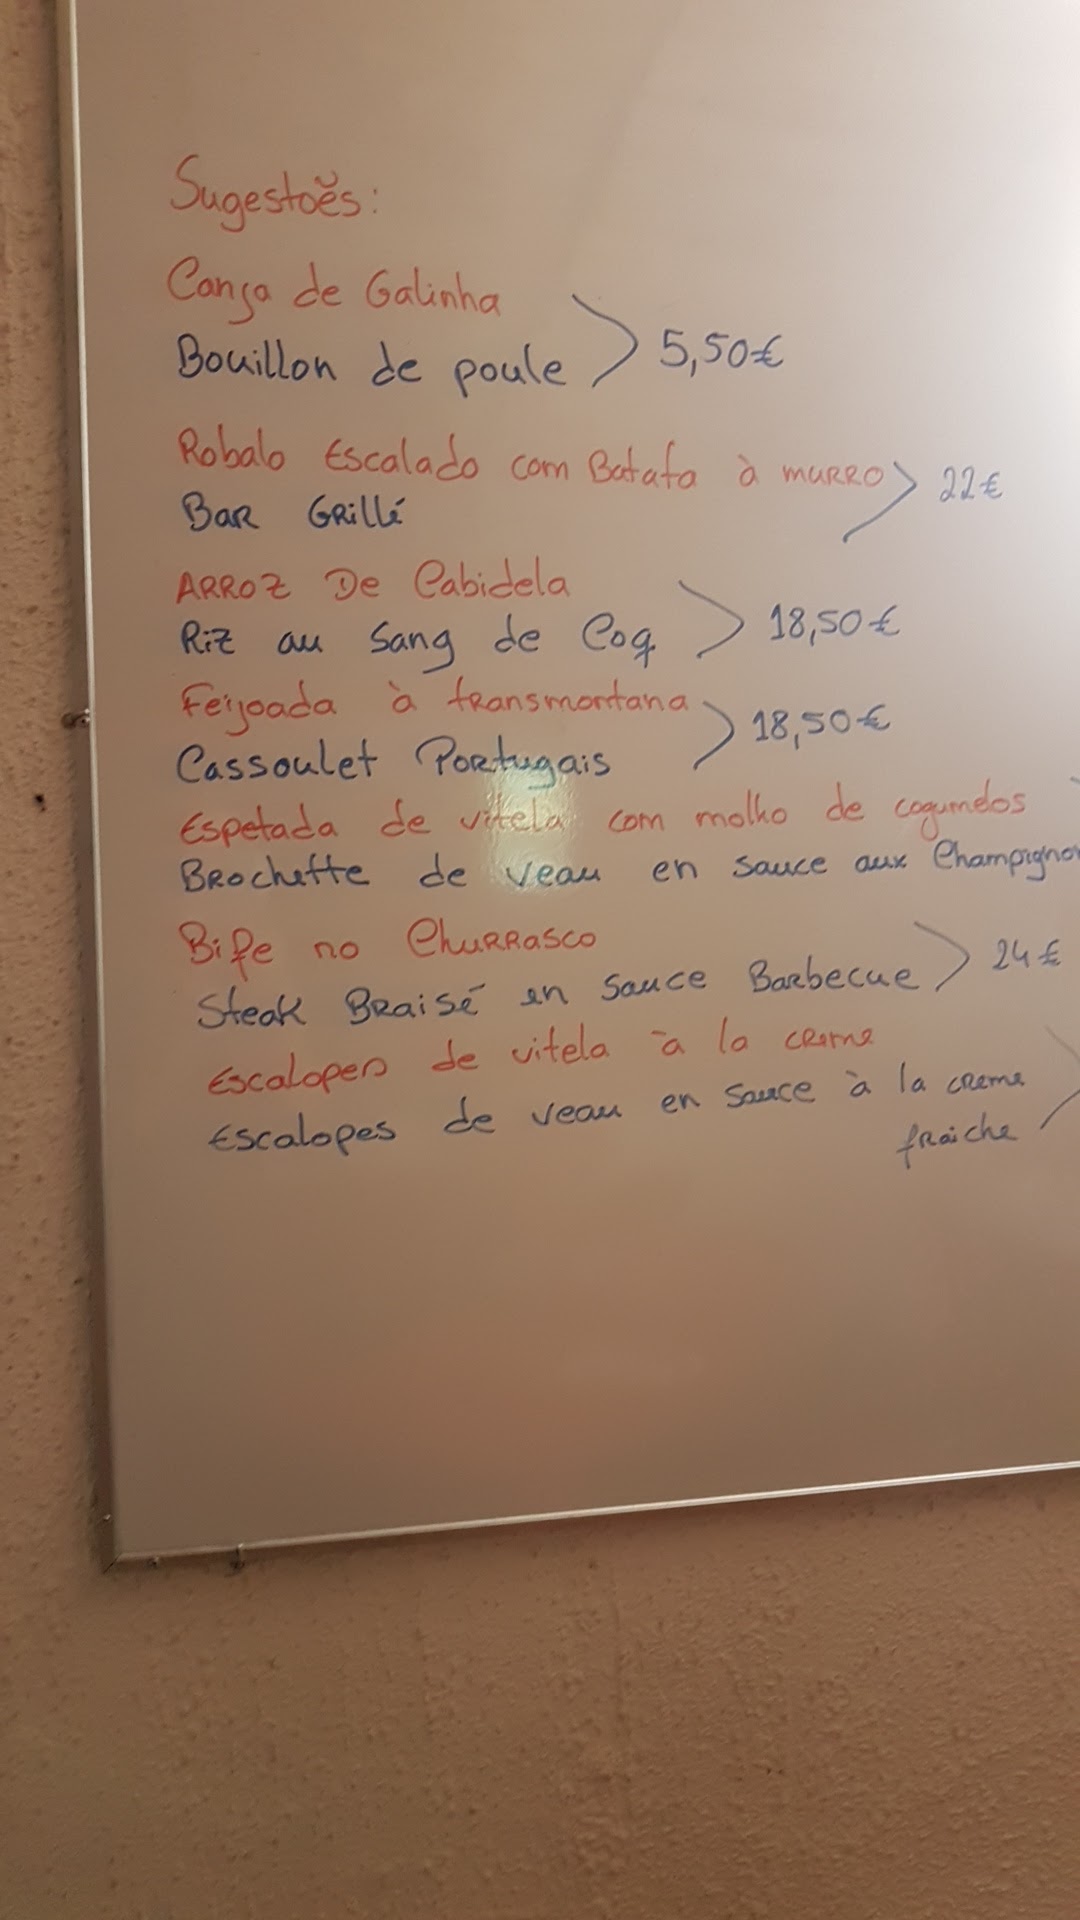 Sugestões:
Canja de Galinha
Bouillon de poule > 5,50€
Robalo Escalado com Batata à murro > 22€
Bar Grillé
Arroz De Cabidela
Riz au Sang de Coq > 18,50€
Feijoada à transmontana > 18,50€
Cassoulet Portugais
Espetada de vitela com molho de cogumelos
Brochette de veau en sauce aux Champigno
Bife no Churrasco
Steak Braisé en sauce Barbecue > 24€
Escalopes de vitela à la creme
Escalopes de veau en sauce à la creme
fraiche